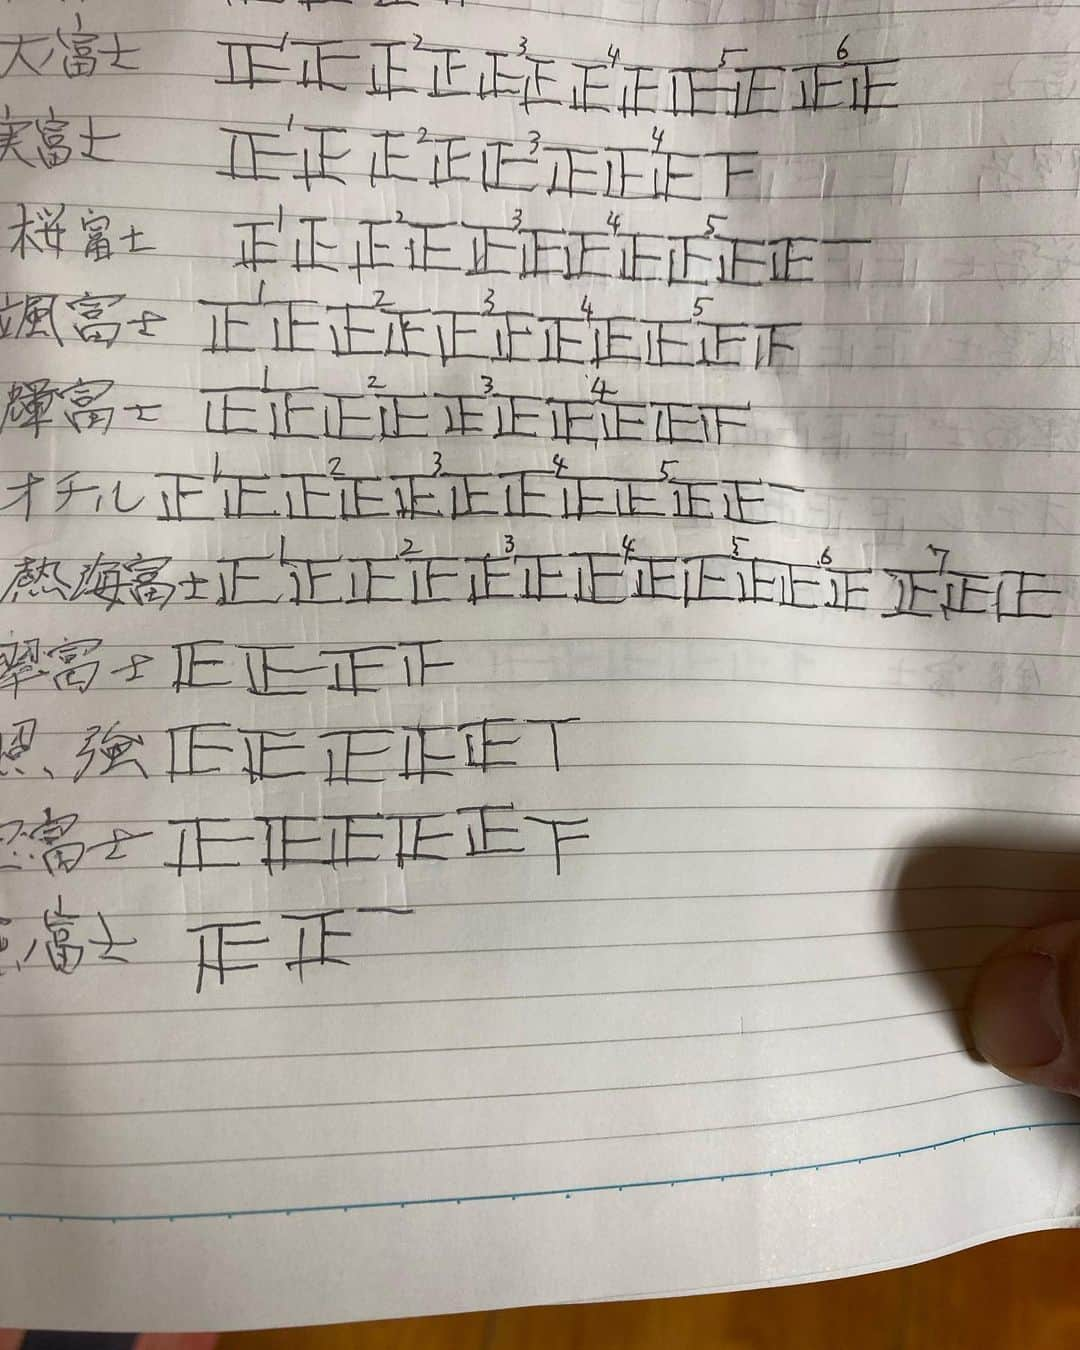 大ノ富士 正正正正正正正正正正正正 1 2 3 4 5 6
実富士 正正正正正正正正下 1 2 3 4
桜富士 正正正正正正正正正正正一 1 2 3 4 5
颯富士 正正正正正正正正正正下 1 2 3 4 5
輝富士 正正正正正正正正正下 1 2 3 4
オチル 正正正正正正正正正正正一 1 2 3 4 5
熱海富士 正正正正正正正正正正正正正正正 1 2 3 4 5 6 7
翠富士 正正正下
強 正正正正正丅
富士 正正正正正下
ノ富士 正正一